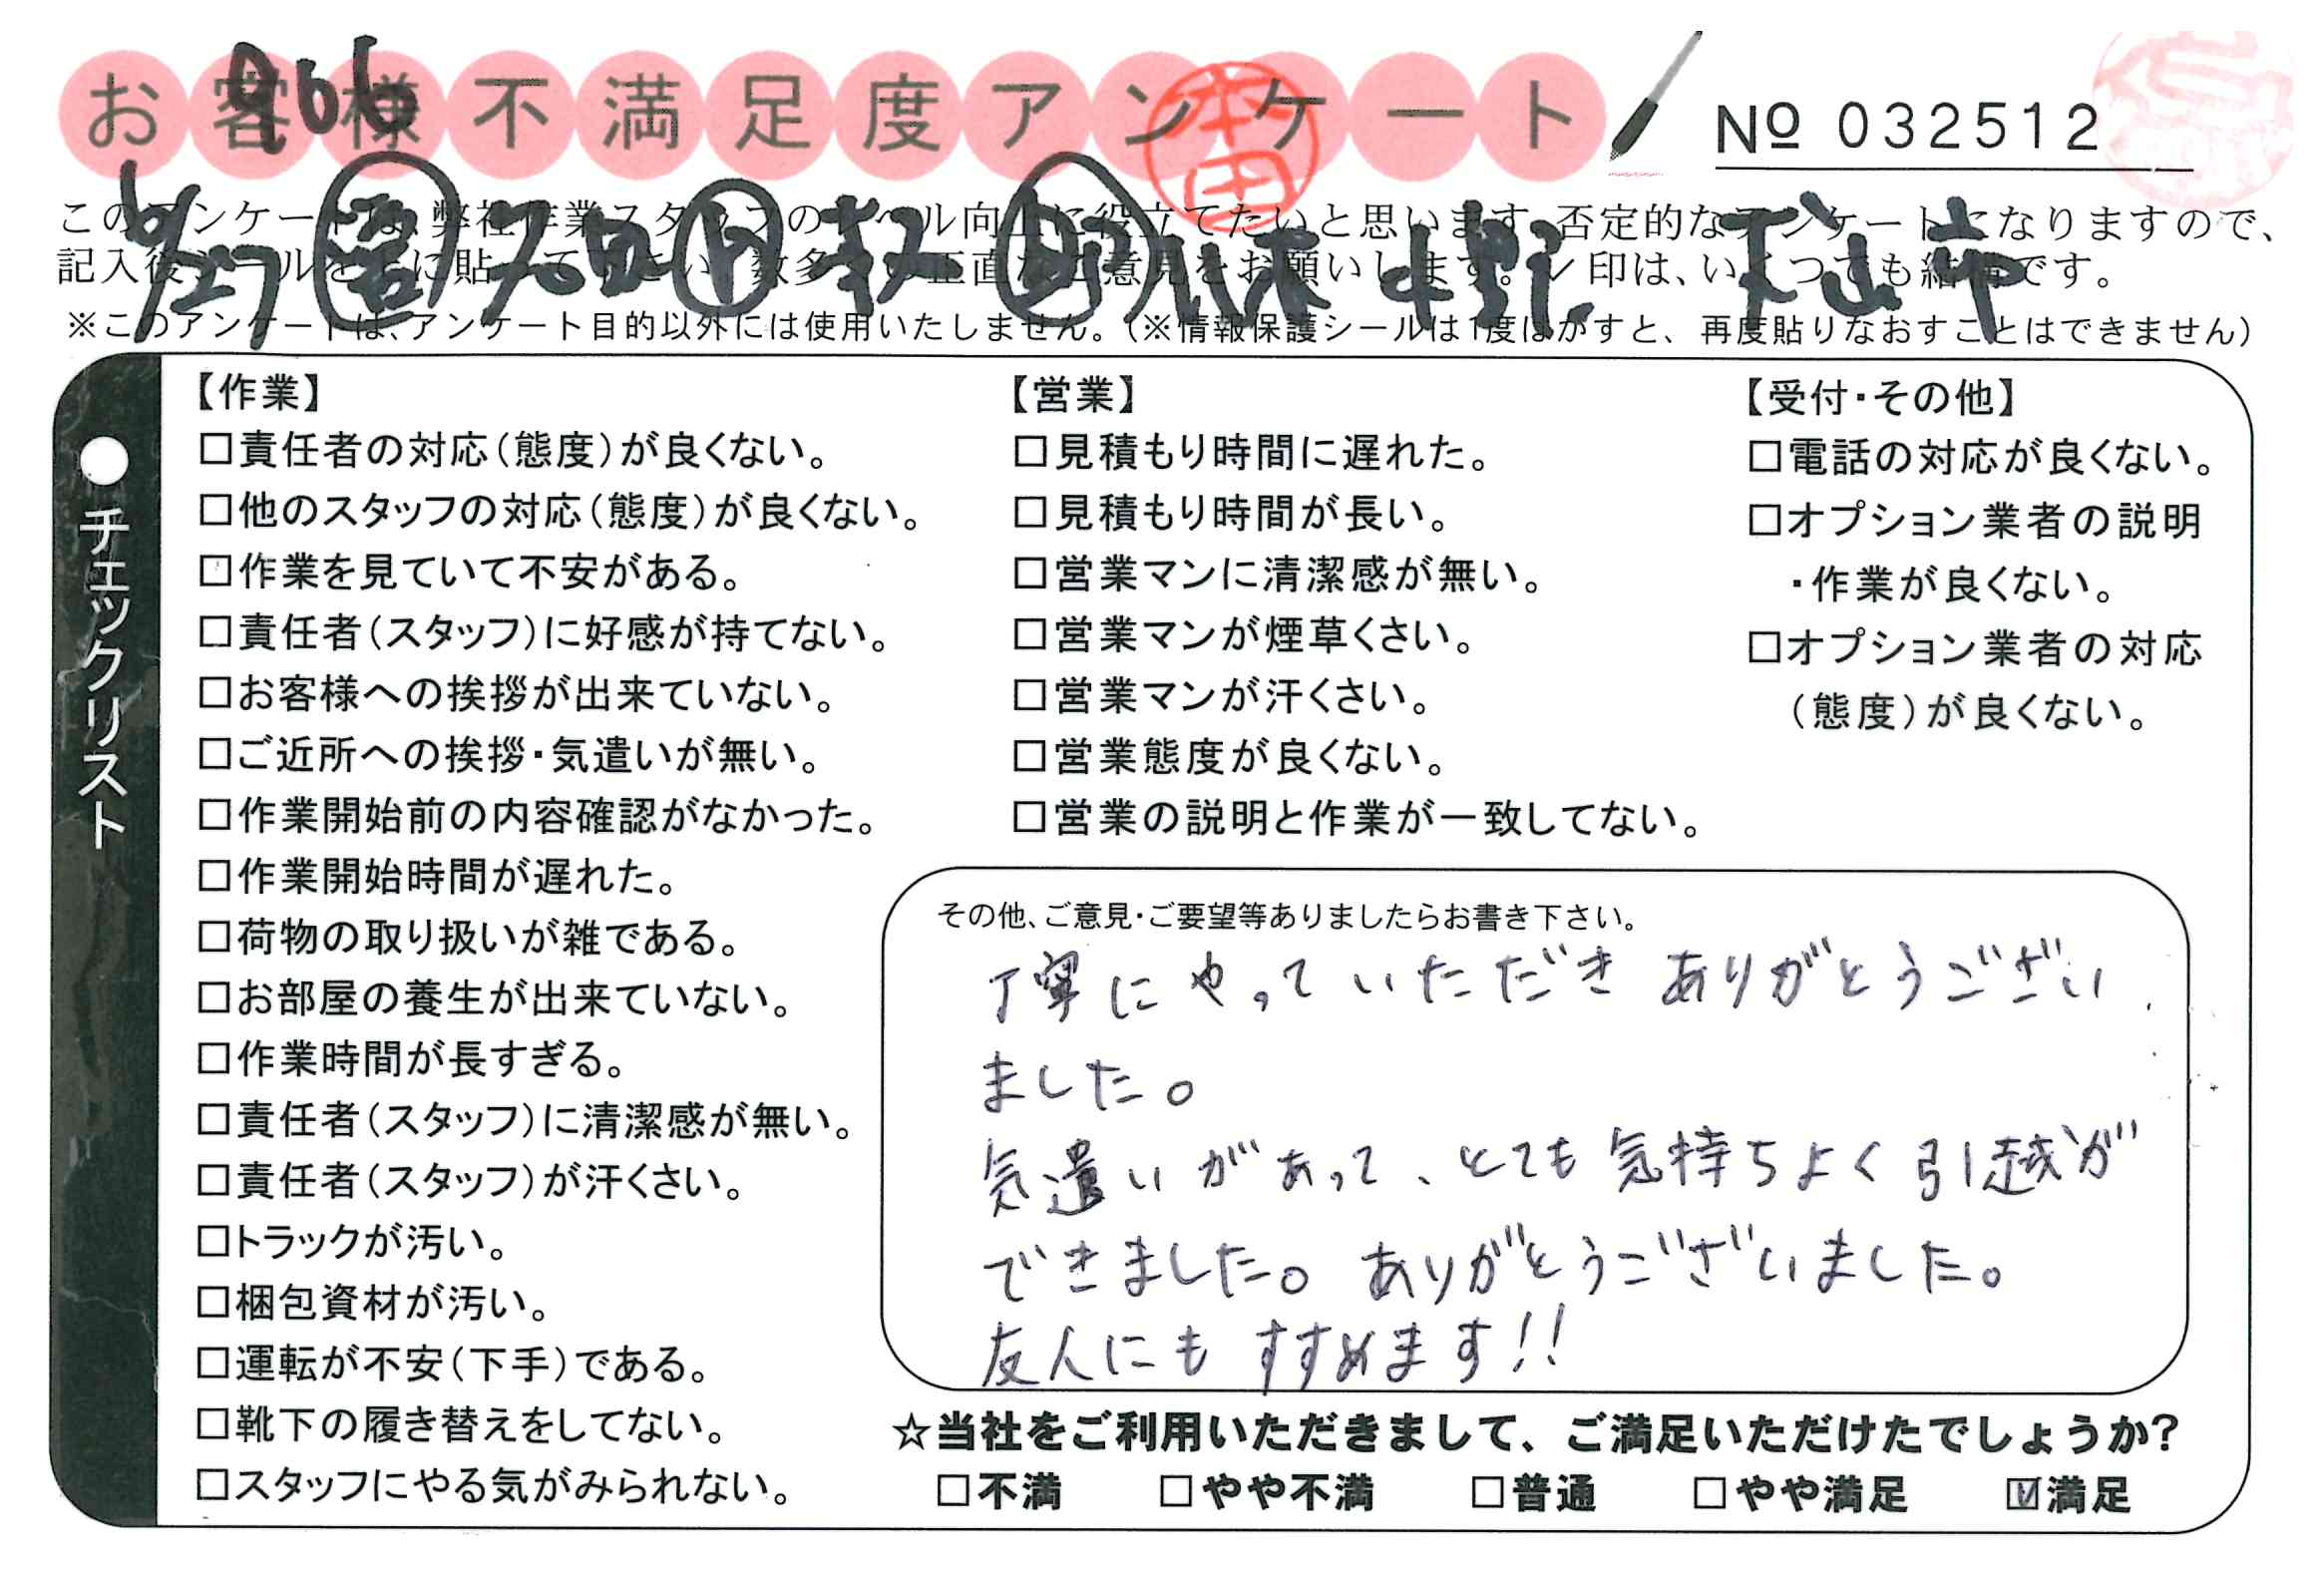 お客様不満足度アンケート
906
本田
№ 032512
このアンケートは、弊社作業スタッフのレベル向上に役立てたいと思います。否定的なアンケートになりますので、
記入後シールを上に貼って下さい。数多くの正直なご意見をお願いします。レ印は、いくつでも結構です。
6/27
※このアンケートは、アンケート目的以外には使用いたしません。(※情報保護シールは1度はがすと、再度貼りなおすことはできません)
●チェックリスト
【作業】
□責任者の対応(態度)が良くない。
□他のスタッフの対応(態度)が良くない。
□作業を見ていて不安がある。
□責任者(スタッフ)に好感が持てない。
□お客様への挨拶が出来ていない。
□ご近所への挨拶・気遣いが無い。
□作業開始前の内容確認がなかった。
□作業開始時間が遅れた。
□荷物の取り扱いが雑である。
□お部屋の養生が出来ていない。
□作業時間が長すぎる。
□責任者(スタッフ)に清潔感が無い。
□責任者(スタッフ)が汗くさい。
□トラックが汚い。
□梱包資材が汚い。
□運転が不安(下手)である。
□靴下の履き替えをしてない。
□スタッフにやる気がみられない。
【営業】
□見積もり時間に遅れた。
□見積もり時間が長い。
□営業マンに清潔感が無い。
□営業マンが煙草くさい。
□営業マンが汗くさい。
□営業態度が良くない。
□営業の説明と作業が一致してない。
【受付・その他】
□電話の対応が良くない。
□オプション業者の説明
・作業が良くない。
□オプション業者の対応
(態度)が良くない。
その他、ご意見・ご要望等ありましたらお書き下さい。
丁寧にやっていただきありがとうござい
ました。
気遣いがあって、とても気持ちよく引越が
できました。ありがとうございました。
友人にもすすめます!!
☆当社をご利用いただきまして、ご満足いただけたでしょうか?
□不満 □やや不満 □普通 □やや満足 ☑満足